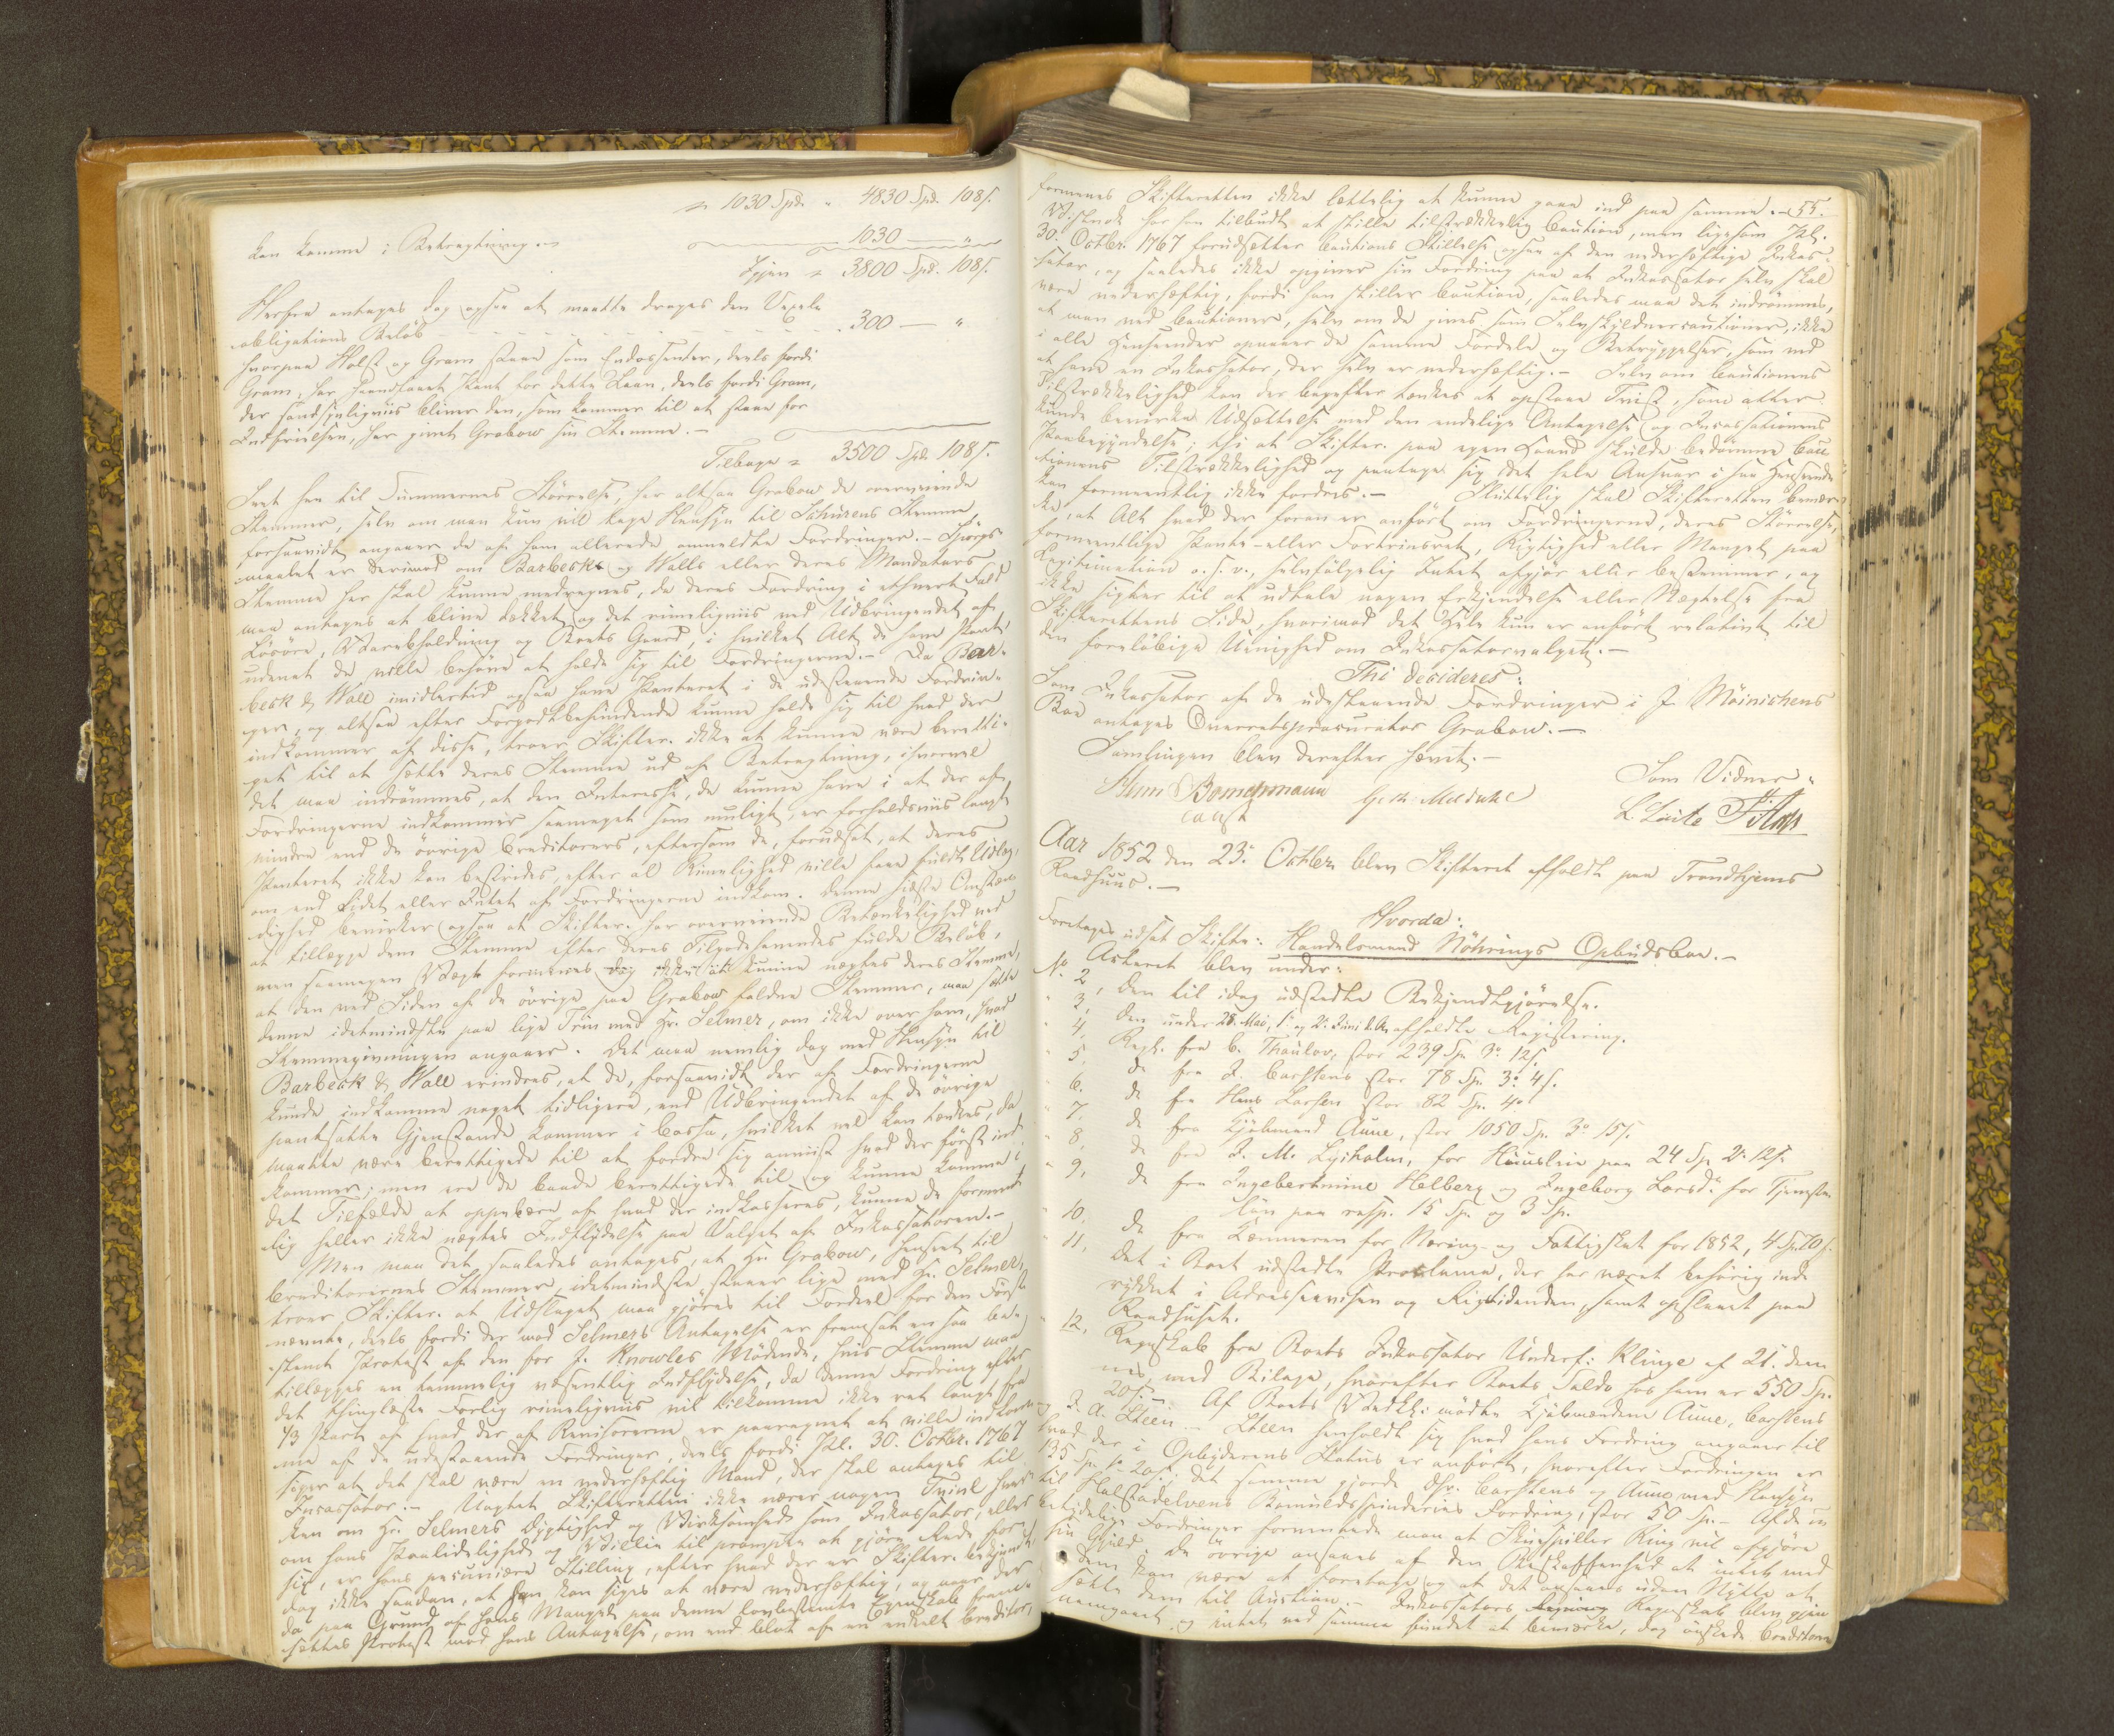 = 1030 Spd. " 4830 Spd. 108 s.
kan komme i Betragtning. = 1030 — "
Igjen = 3800 Spd. 108 s.
Herfra antages dog ogsaa at maatte drages den Vexel-
obligations Beløb - - - 300 — "
hvorpaa Holst og Gram staae som Endossenter, deels fordi
Gram, har haandfaaet Pant for dette Laan, deels fordi Gram,
der sandsynligviis bliver den, som kommer til at staae for
Indfrielsen, har givet Grabow sin Stemme. -
Tilbage = 3500 Spd. 108 s.
Seet hen til Summernes Størrelse, har altsaa Grabow de overveiende
Stemmer, selv om man kun vil tage Hensyn til Schivens Stemme,
forsaavidt angaaer de af ham allerede anmeldte Fordringer. - Spørgs-
maalet er derimod om Barbeck & Walls eller deres Mandatars
Stemme her skal kunne medregnes, da deres Fordring i ethvert Fald
maa antages at blive dækket og det rimeligviis ved Udbringendet af
Løsøre, Varebeholdning og Boets Gaard, i hvilket Alt de have Pant,
uden at de ville behøve at holde sig til Fordringerne. - Da Bar-
beck & Wall imidlertid ogsaa have Panteret i de udestaaende Fordrin-
ger, og altsaa efter Forgodtbefindende kunne holde sig til hvad der
indkommer af disse, troer Skifter. ikke at kunne være beretti-
get til at sætte deres Stemme ud af Betragtning, ihvorvel
det maa indrømmes, at den Interesse, de kunne have i at der af
Fordringerne indkommer saameget som muligt, er forholdsviis langt
mindre end de øvrige Creditorers, eftersom de, forudsat, at deres
Panteret ikke kan bestrides, efter al Rimelighed ville faae fuldt Udlæg,
om end Lidet eller Intet af Fordringerne indkom. Denne sidste Omstæn-
dighed bevirker ogsaa at Skifter. har overveiende Betænkelighed ved
at tillægge dem Stemme efter deres Tilgodehavendes fulde Beløb,
men saamegen Vægt formenes dog ikke at kunne negtes deres Stemme,
at den ved Siden af de øvrige paa Grabow faldne Stemmer, maa sætte
denne idetmindste paa lige Trin med Hr. Selmer, om ikke over ham, hvad
Stemmegivningen angaaer. Det maa nemlig dog med Hensyn til
Barbeck & Wall erindres, at de, forsaavidt der af Fordringerne
kunde indkomme noget tidligere, end Udbringendet af de øvrige
pantsatte Gjenstande kommer i Cassa, hvilket vel kan tænkes, da
maatte være berettigede til at fordre sig anviist hvad der først ind-
kommer; men ere de baade berettigede til og kunne komme i
det Tilfælde at oppebære af hvad der indkasseres, kunne de forment-
lig heller ikke negtes Indflydelse paa Valget af Inkassatoren. -
Men maa det saaledes antages, at Hr. Grabow, henseet til
Creditorernes Stemmer idetmindste staaer lige med Hr. Selmer,
troer Skifter. at Udslaget maa gjøres til Fordeel for den Først-
nævnte, deels fordi der mod Selmers Antagelse er fremsat en saa be-
stemt Protest af den for J. Knowles Mødende, hvis Stemme maa
tillægges en temmelig væsentlig Indflydelse, da denne Fordring efter
det thinglæste Forlig rimeligviis vil tilkomme ikke ret langt fra
1/3 Part af hvad der af Revisorerne er paaregnet at ville indkom-
me af de udestaaende Fordringer, deels fordi Pl. 30. Octbr. 1767
siger at det skal være en vederhæftig Mand, der skal antages til
Incassator. - Uagtet Skifteretten ikke nærer nogen Tvivl hver-
ken om Hr. Selmers Dygtighed og Virksomhed som Inkassator, eller
om hans Paalidelighed og Villie til prompte at gjøre Rede for
sig, er hans pecuniære Stilling, efter hvad der er Skifter. bekjendt
dog ikke saadan, at han kan siges at være vederhæftig, og naar der
da paa Grund af hans Mangel paa denne lovbestemte Egenskab frem-
sættes Protest mod hans Antagelse, om end blot af en enkelt Creditor,
55.
formenes Skifteretten ikke lettelig at kunne gaae ind paa samme. -
Vistnok har han tilbudt at stille tilstrækkelig Caution, men ligesom Pl.
30. Octbr. 1767 forudsætter Cautions Stillelse ogsaa af den vederhæftige Inkas-
sator, og saaledes ikke opgiver sin Fordring paa at Inkassator selv skal
være vederhæftig, fordi han stiller Caution, saaledes maa det indrømmes,
at man ved Cautioner, selv om de gives som Selvskyldnercautioner, ikke
i alle Henseender opnaaer de samme Fordele og Betryggelser, som ved
at have en Inkassator, der selv er vederhæftig. - Selv om Cautionens
Tilstrækkelighed kan der bagefter tænkes at opstaae Tvist, som atter
kunde bevirke Udsættelse med den endelige Antagelse og Incassationens
Paabegyndelse; thi at Skifter. paa egen Haand skulde bedømme Cau-
tionens Tilstrækkelighed og paatage sig det hele Ansvar i saa Henseende
kan formeentlig ikke fordres. - Sluttelig skal Skifteretten bemær-
ke, at Alt hvad der foran er anført om Fordringerne, deres Størrelse,
formeentlige Pante- eller Fortrinsret, Rigtighed eller Mangel paa
Legitimation o. s. v., selvfølgelig Intet afgjør eller bestemmer, og
ikke sigter til at udtale nogen Erkjendelse eller Negtelse fra
Skifterettens Side, hvorimod det Hele kun er anført relativt til
den foreløbige Uenighed om Inkassatorvalget. -
Thi decideres:
Som Inkassator af de udestaaende Fordringer i J. Møinichens
Boe antages Overretsprocurator Grabow. -
Samlingen blev derefter hævet. -
Som Vidner:
const
Aar 1852 den 23de Octbr. blev Skifteret afholdt paa Trondhjems
Raadhuus. -
Hvorda:
Foretages udsat Skifte i Handelsmand Nøhrings Opbudsboe. -
Acteret blev under:
No 2, den til idag udstedte Bekjendtgjørelse.
" 3, den under 28. Mai, 1. og 2. Juni d. A. afholdte Registering.
" 4, Regn. fra C. Thaulow, stor 239 Sp. 3 o 12 s.
" 5, do fra J. Carstens stor 78 Sp. 3 o 4 s.
" 6, do fra Hans Larsen stor 82 Sp. 4 o
" 7, do fra Kjøbmand Aune, stor 1050 Sp. 3 o 15 s.
" 8, do fra J. M. Lysholm, for Huusleie paa 24 Sp. 2 o 12 s.
" 9, do fra Ingebertmine Helberg og Ingeborg Larsd. for Tjeneste-
løn paa resp. 15 Sp. og 3 Sp.
" 10, do fra Kæmneren for Nærings- og Fattigskat for 1852, 4 Sp. 70 s.
" 11, det i Boet udstedte Proclama, der har været behørig inde-
rykket i Adresseavisen og Rigstidenden, samt opslaaet paa
Raadhuset.
" 12, Regnskab fra Boets Inkassator Underf. Klinge af 21. den-
nes, med Bilage, hvorefter Boets Saldo hos ham er 550 Sp.
20 s. - Af Boets Vedkk: mødte Kjøbmændene Aune, Carstens
og J. A. Steen. - Steen henholdt sig hvad hans Fordring angaaer til
hvad der i Opbyderens Status er anført, hvorefter Fordringen er
135 Sp. 1 o 20 s.; det samme gjorde Dhr. Carstens og Aune med Hensyn
til Halstadelvens Bomuldsspinderies Fordring, stor 50 Sp. - Af de u-
betydelige Fordringer formeente man at Skuespiller Ring vil afgjøre
sin Gjeld. De øvrige ansaaes af den Beskaffenhed at intet med
dem kan være at foretage og at det ansaaes uden Nytte at
sætte dem til Auction. - Inkassators Regnskab blev gjen-
nemgaaet og intet ved samme fundet at bemærke, dog ønskede Creditorerne